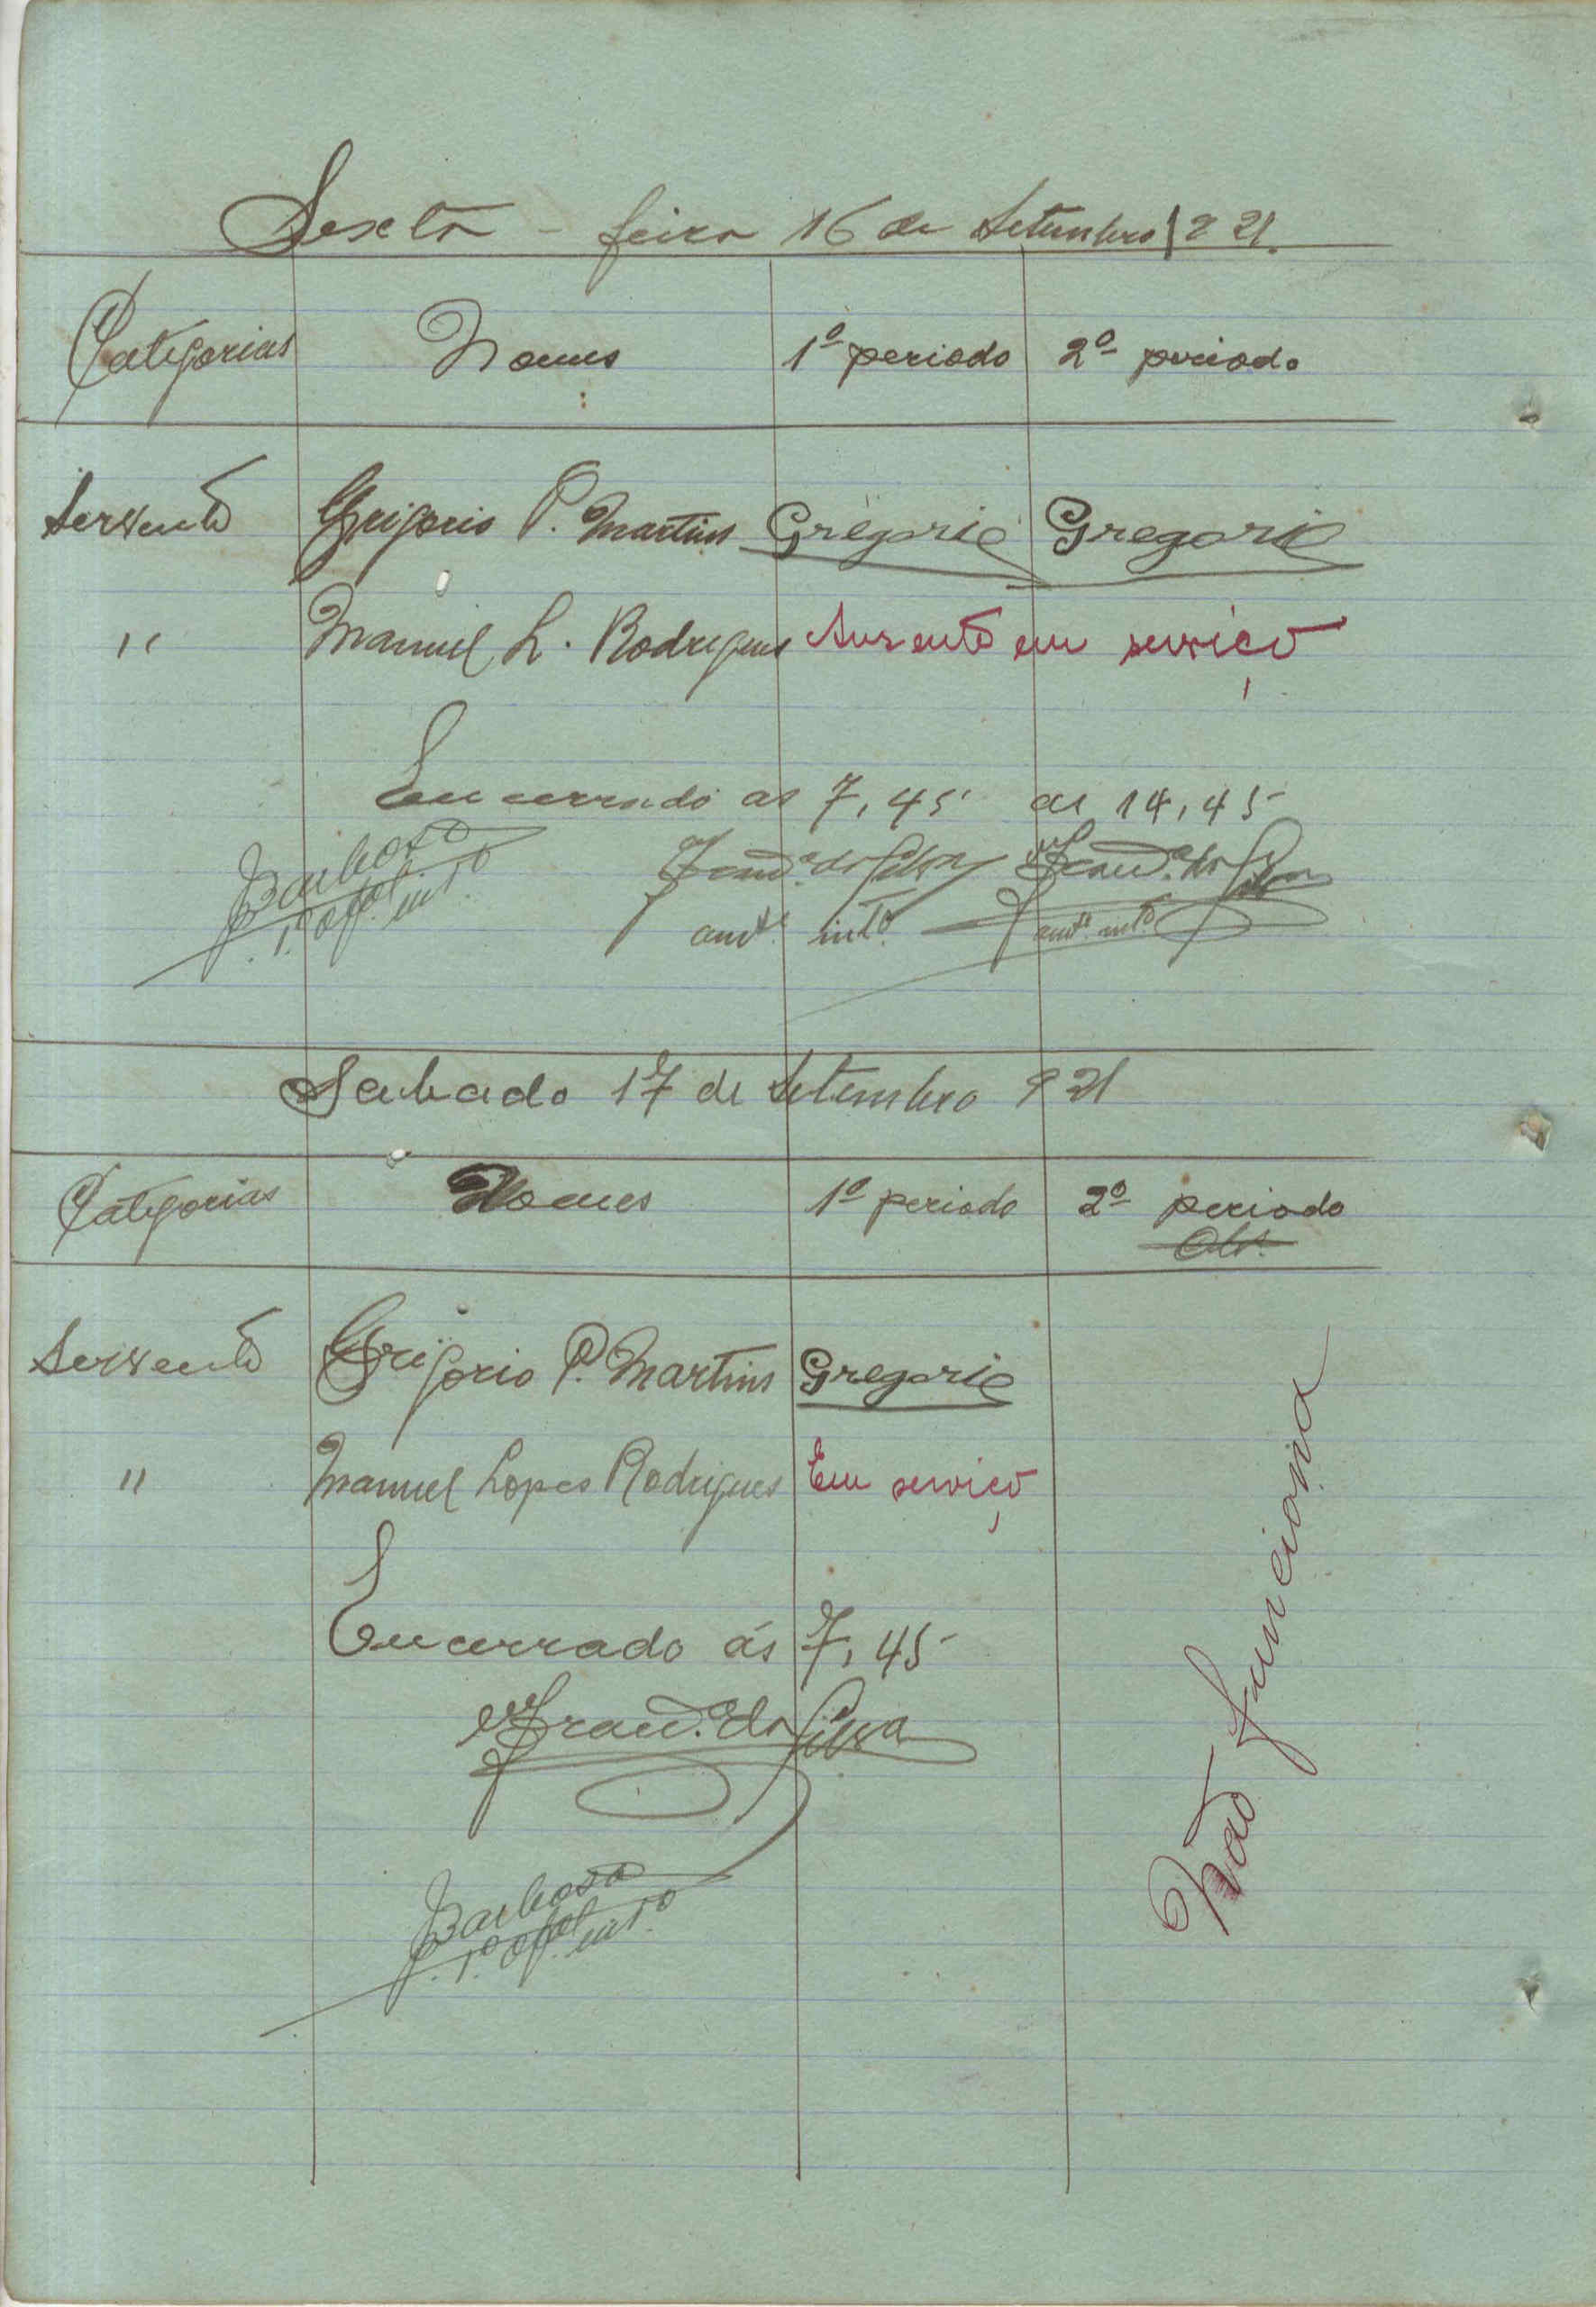 Sexta - feira 16 de Setembro 921.
Categorias Nomes 1º periodo 2º periodo
Servente Grigorio P. Martins Gregorio Gregorio
" Manuel L. Rodrigues Ausente em serviço
Encerrado as 7,45 as 14,45
Barbosa
1º ofal. intº
da Silva
da Silva
amte. intº.
amte. intº.
Sabado 17 de Setembro 921
Categorias Nomes 1º periodo 2º periodo
Obs.
Servente Grigorio P. Martins Gregorio
" Manuel Lopes Rodrigues Em serviço
Encerrado ás 7,45
da Silva
Barbosa
1º ofal. intº
Não funciona